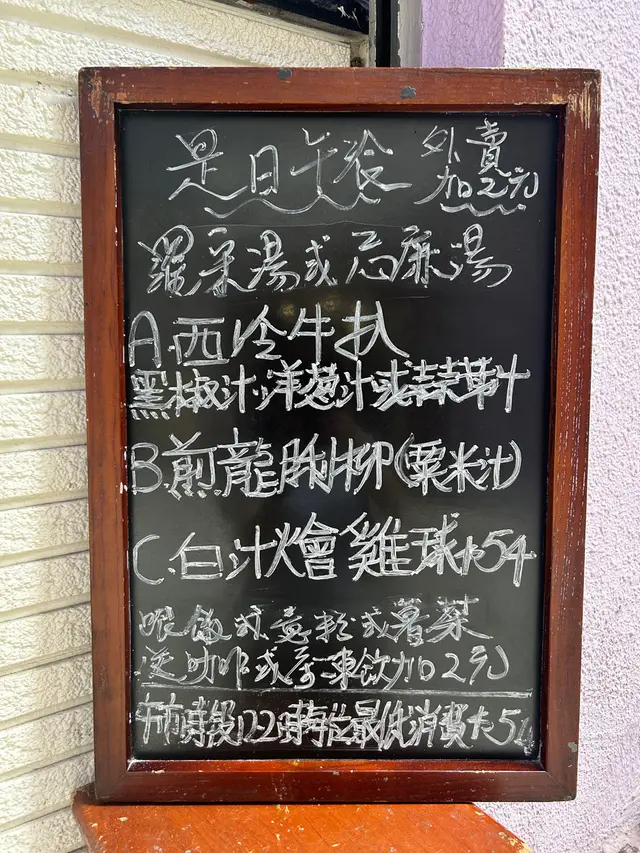 是日午餐 外賣加2元
羅宋湯或忌廉湯
A.西冷牛扒
黑椒汁,洋葱汁或蒜蓉汁
B.煎龍脷柳(粟米汁)
C.白汁燴雞球 54
跟飯或意粉或薯菜
送咖啡或茶凍飲加2元
午市時段12-2時每位最低消費 51